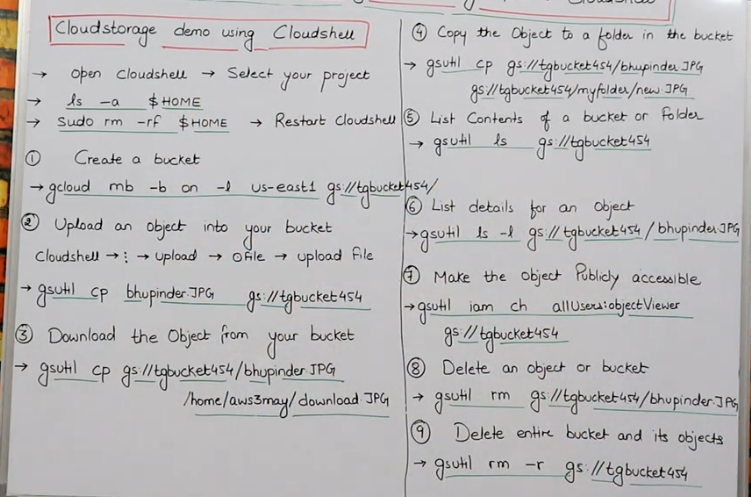 Cloudshell
Cloudstorage demo using Cloudshell
→ open cloudshell → Select your project
→ ls -a $HOME
→ Sudo rm -rf $HOME → Restart Cloudshell
① Create a bucket
→ gcloud mb -b on -l us-east1 gs://tgbucket454/
② Upload an object into your bucket
Cloudshell → ⋮ → upload → ⊙File → upload File
→ gsutil cp bhupinder.JPG gs://tgbucket454
③ Download the Object from your bucket
→ gsutil cp gs://tgbucket454/bhupinder.JPG
/home/aws3may/download.JPG
④ Copy the Object to a folder in the bucket
→ gsutil cp gs://tgbucket454/bhupinder.JPG
gs://tgbucket454/myfolder/new.JPG
⑤ List Contents of a bucket or Folder
→ gsutil ls gs://tgbucket454
⑥ List details for an Object
→ gsutil ls -l gs://tgbucket454/bhupinder.JPG
⑦ Make the object Publicly accessible
→ gsutil iam ch allUsers:objectViewer
gs://tgbucket454
⑧ Delete an object or bucket
→ gsutil rm gs://tgbucket454/bhupinder.JPG
⑨ Delete entire bucket and its objects
→ gsutil rm -r gs://tgbucket454